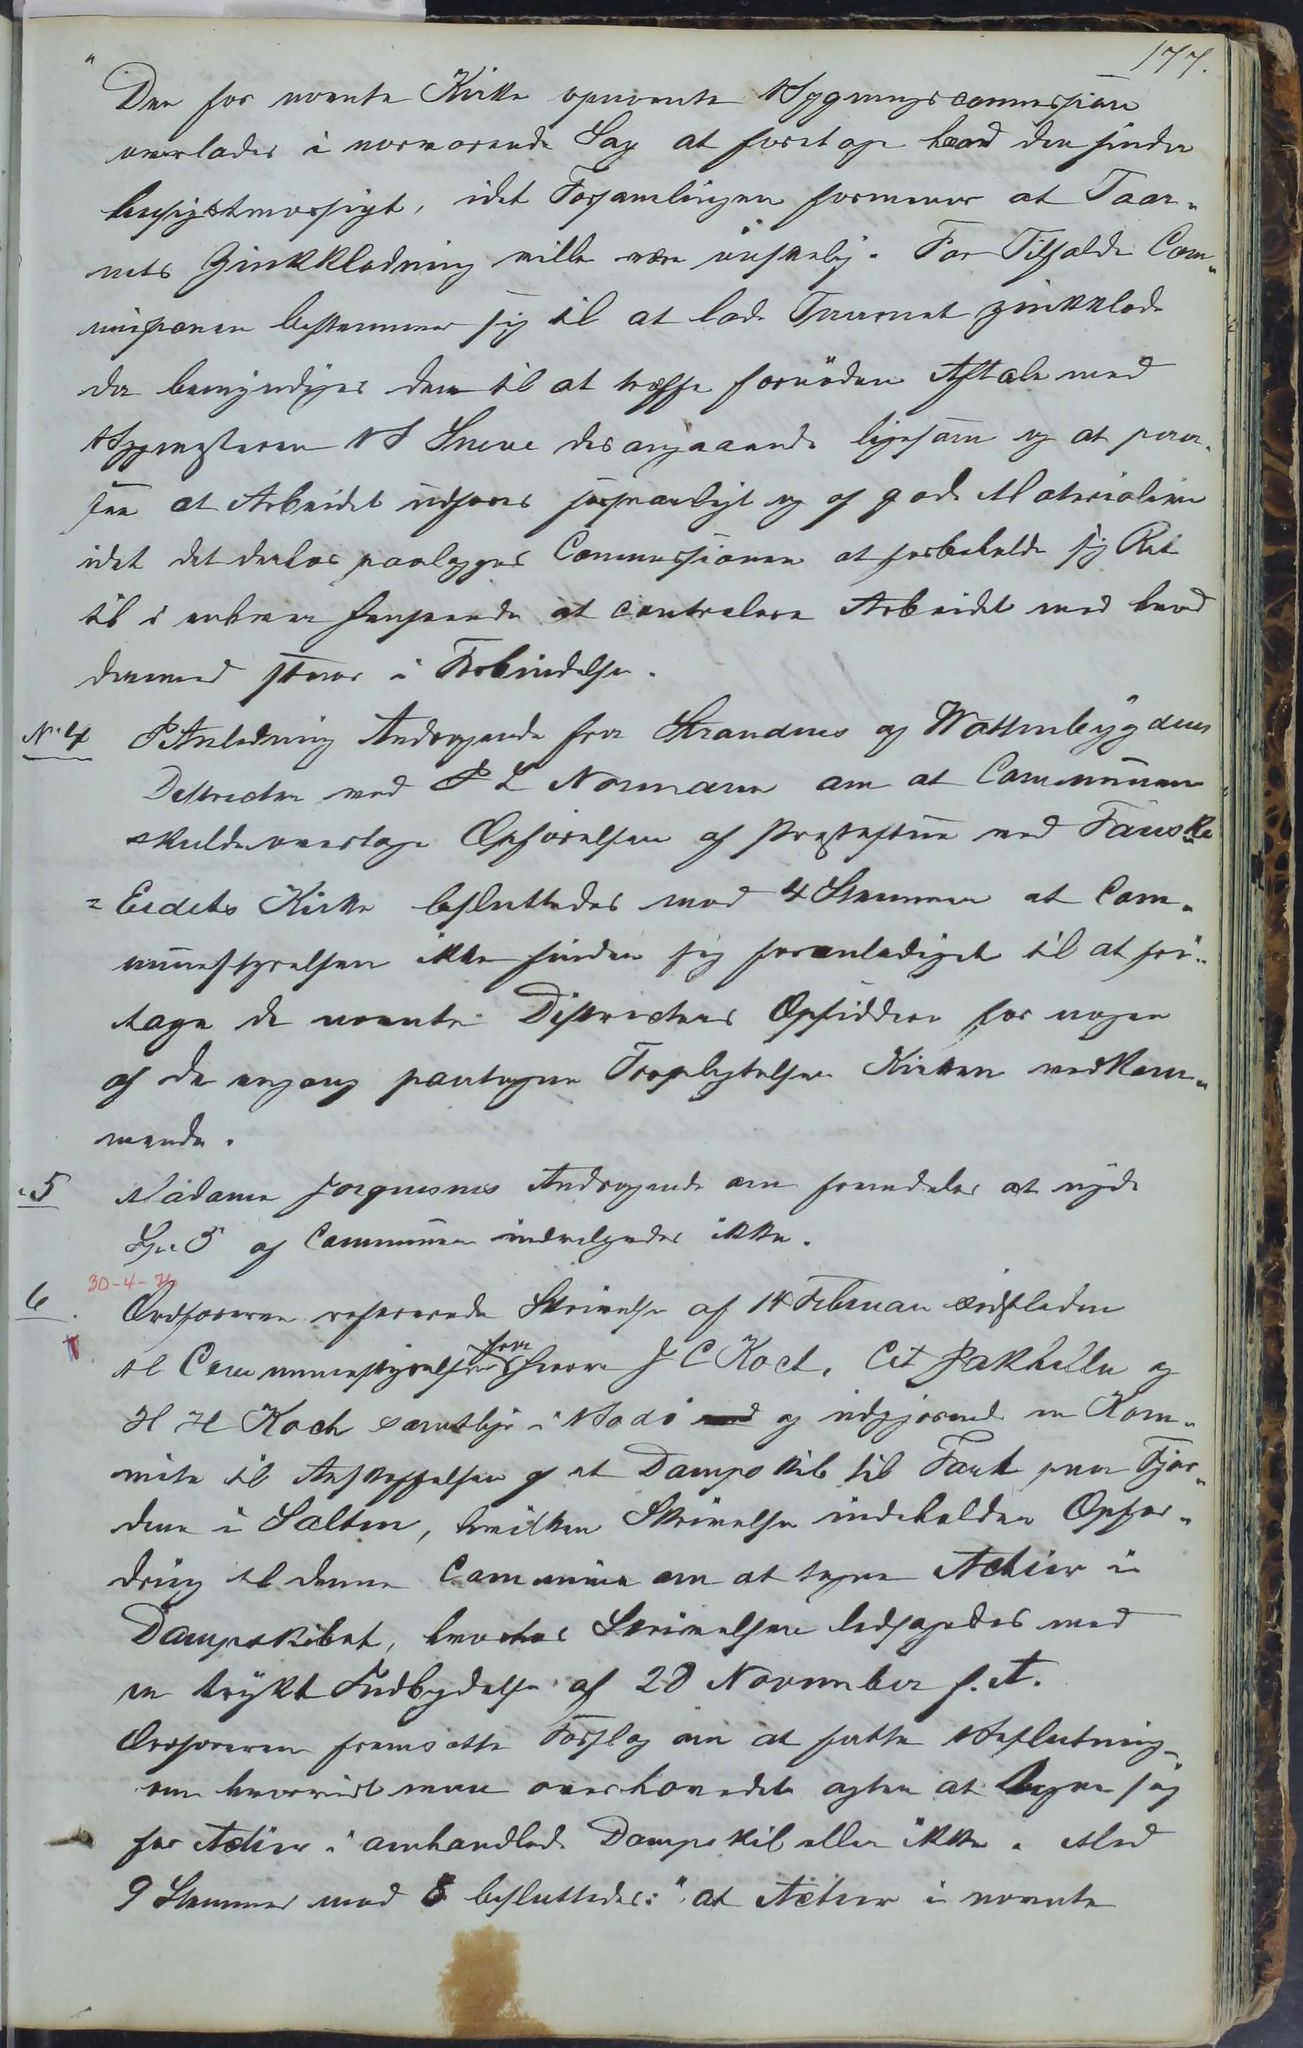 177.
"Den for nævnte Kirke opnævnte Bygningscommission
overlades i nærværende Sag at foretage hvad den finder
hensigtsmæssigt, idet Forsamlingen formener at Taar-
nets Zinkklædning ville være ønskelig. For Tilfælde Com-
missionen bestemmer sig til at lade Taarnet zinkklæde
da bemyndiges den til at træffe fornøden Aftale med
Bygmesteren Sneve desangaaende ligesom og at paa-
see at Arbeidet udføres forsvarligt og af gode Materialier
idet det derhos paalægges Commissionen at forbeholde sig Ret
til i enhver Henseende at controlere Arbeidet med hvad
dermed staar i Forbindelse.
No 4 I Anledning Andragende fra Strandens og Wattenbygdens
Districter ved P L Normann om at Communen
skulde overtage Opførelsen af Præstestue ved Fauske
=Eidets Kirke besluttedes mod 4 Stemmer at Com-
munestyrelsen ikke finder sig foranlediget til at fri-
tage de nævnte Districters Opsiddere for nogen
af de engang paatagne Forpligtelser Kirken vedkom-
mende.
" 5 Madame Jørgensens Andragende om fremdeles at nyde
af Communen indvilgedes ikke.
30-4-
6 Ordføreren refererede Skrivelse af 14 Februar sidstleden
til Communestyrelsen fra Herrer J C Koch, Jakhelln og
H H Koch samtlige i Bodø og udgjørende en Kom-
mite til Anskaffelsen af et Dampskib til Fart paa Fjor-
dene i Salten, hvilken Skrivelse indeholder Opfor-
dring til denne Commune om at tegne Actier i
Dampskibet, hvorhos Skrivelsen ledsagedes med
en trykt Indbydelse af 28 November f. A.
Ordføreren fremsatte Forslag om at fatte Beslutning
om hvorvidt man overhovedet agter at tegne sig
for Actier i omhandlede Dampskib eller ikke. Med
9 Stemmer mod 8 besluttedes: "at Actier i nævnte